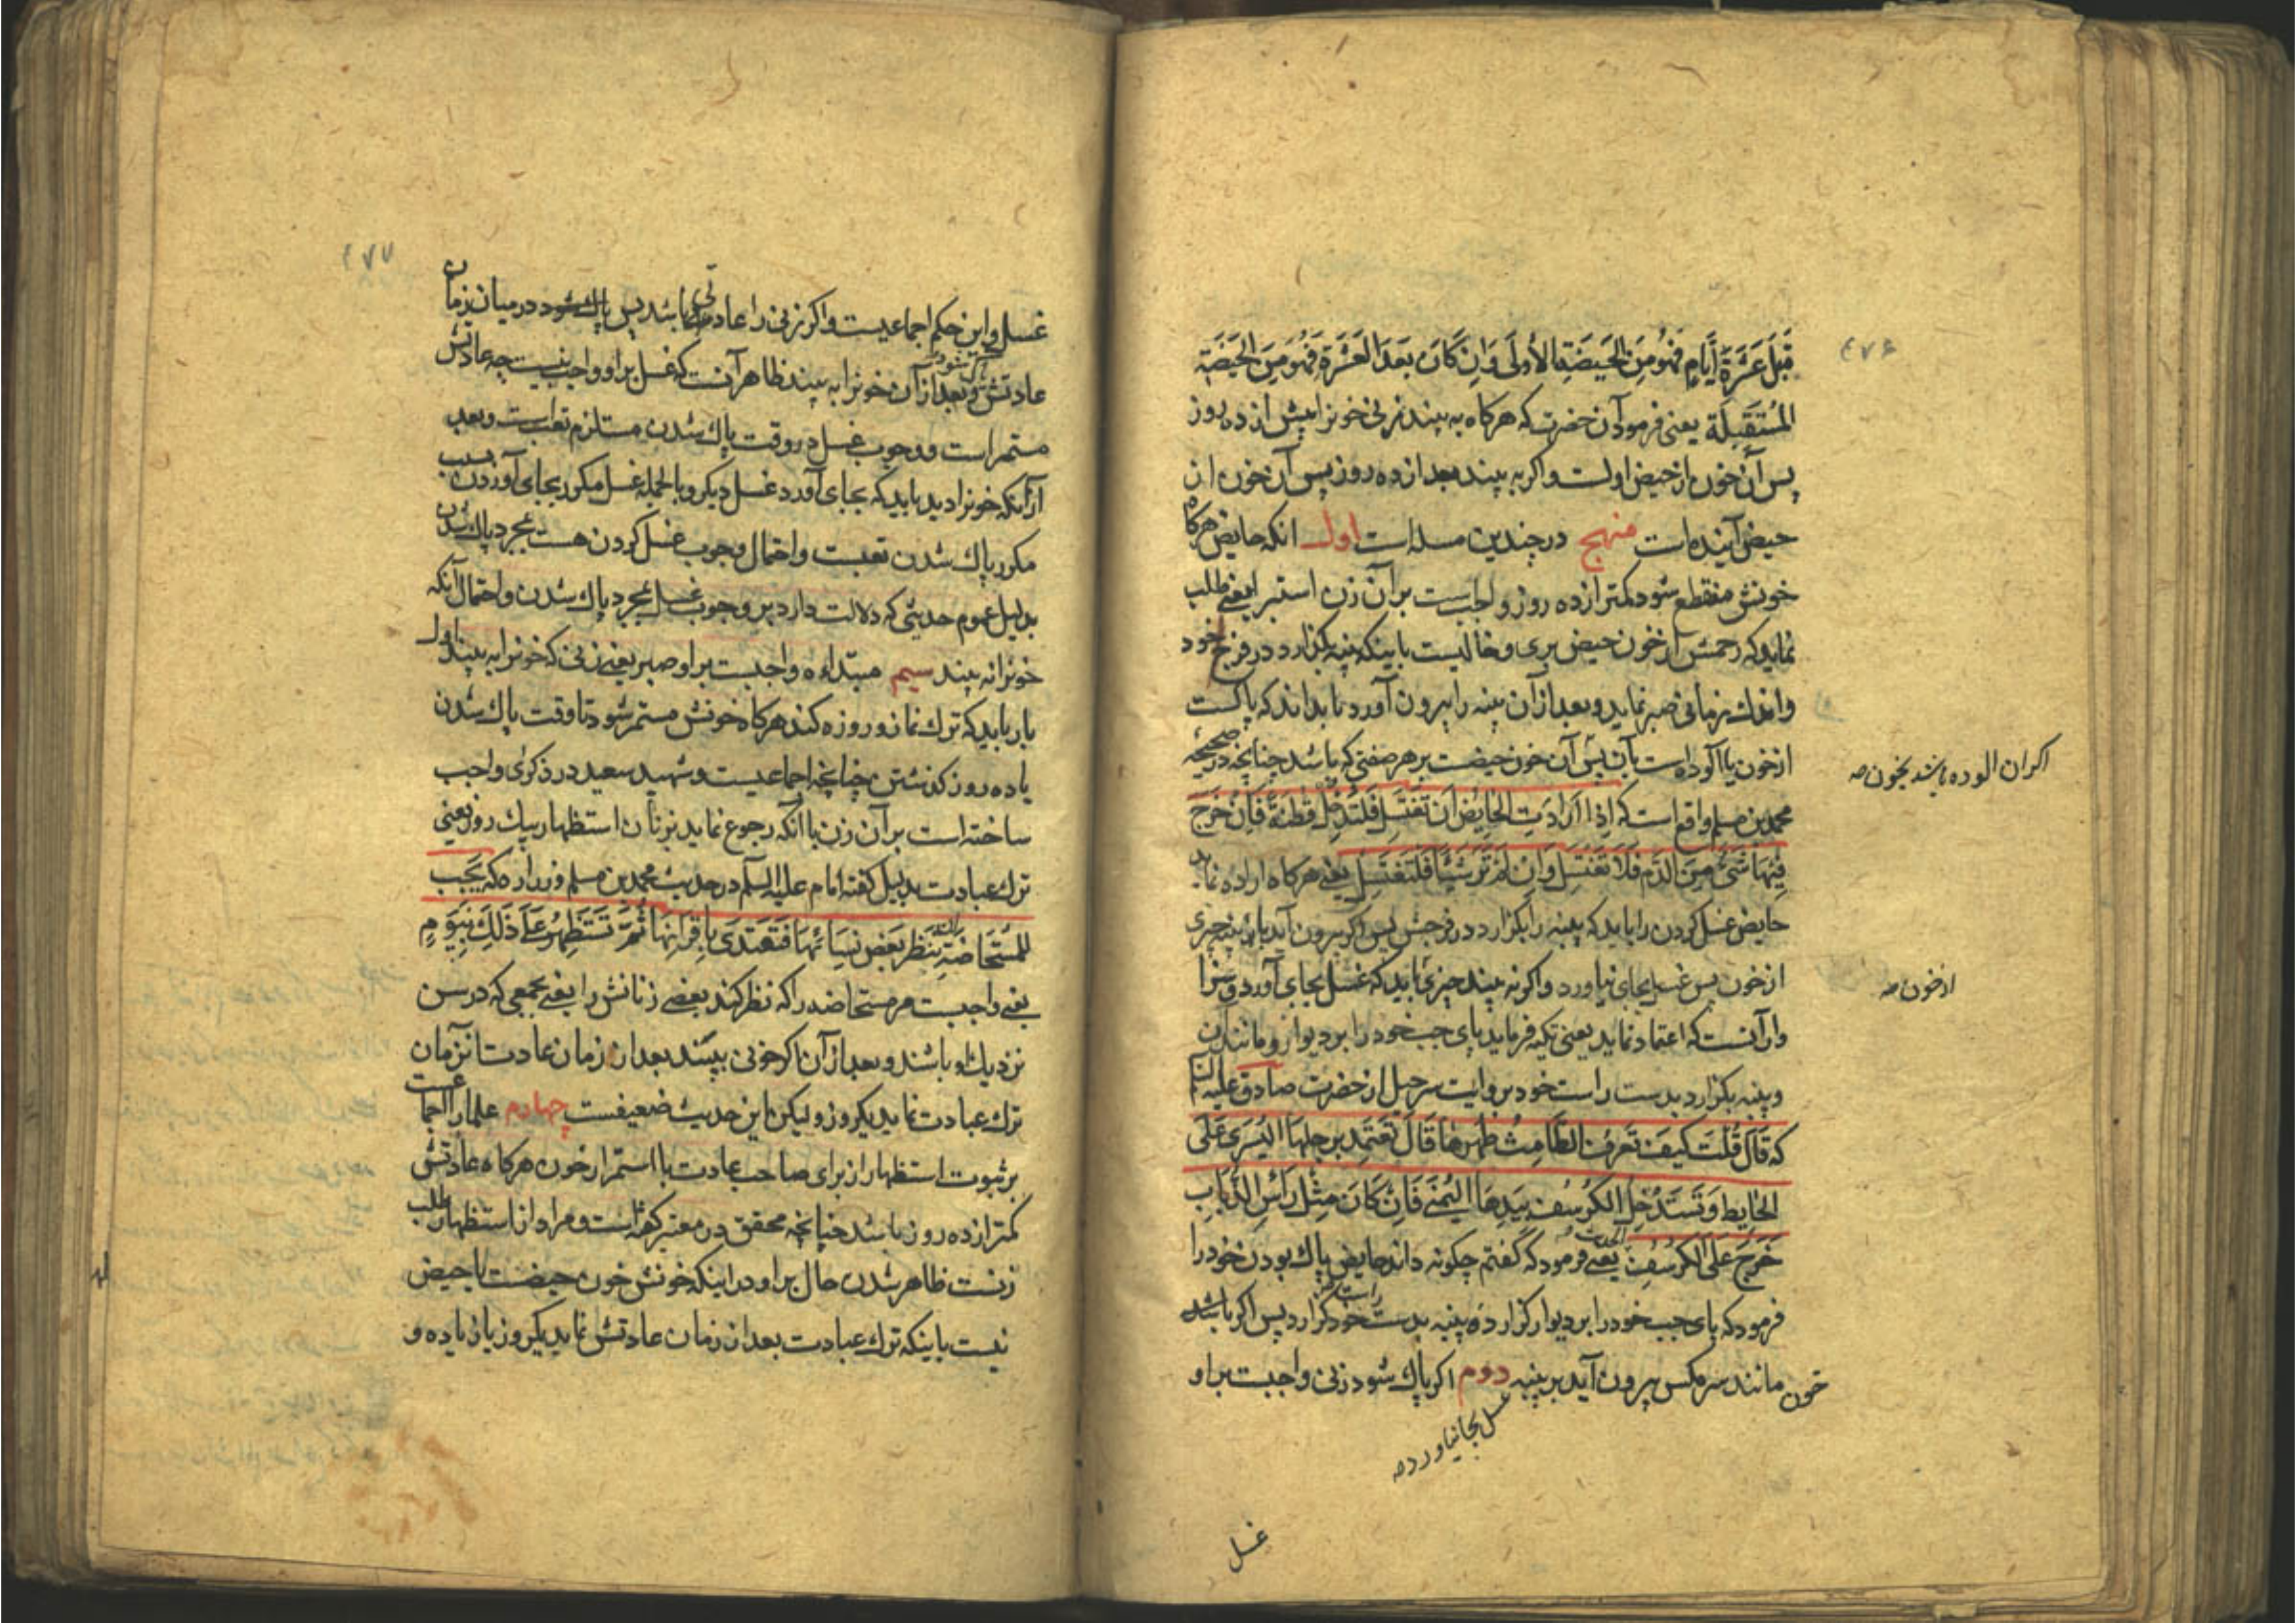 ۴۷۶
قَبلَ عَشَرَةِ أَيّامٍ فَهُوَ مِنَ الحَيضَةِ الأُولَى وَاِن كَانَ بَعدَ العَشَرَةِ فَهُوَ مِنَ الحَيضَةِ
المُستَقبِلَة يعنی فرمود آن حضرت که هرکاه به بیند زنی خونرا پیش از ده روز
پس آن خون از حیض اولست و اکر به بیند بعد از ده روز پس آن خون از
حیض آینده است منهج در چندین مسله است اول انکه حایض هرکاه
خونش منقطع شود کمتر از ده روز واجبست بر آن زن استبرا یعنی طلب
نماید که رحمش از خون حیض بری و خالیست باینکه پنبه بکذارد در فرج خود
و اندك زمانی صبر نماید و بعد از آن پنبه را بیرون آورد تا بداند که پاکست
از خون یا آلوده است بآن پس آن خون حیضست بر هر صفتی که باشد چنانچه در صحیحه
اکر ان الوده باشد بخون صه
محمد بن مسلم واقع است که اِذا اَرادَتِ الحایِضُ اَن تَغتَسِلَ فَلتَدخِل قُطنَةً فَاِن خَرَجَ
فِیهَا شَیءٌ مِنَ الدَّمِ فَلَا تَغتَسِل وَاِن لَم تَرَ شَیئًا فَلتَغتَسِل یعنی هرکاه اراده نماید
حایض غسل کردن را باید که پنبه را بکزارد در فرجش پس اکر بیرون آید بان پنبه چیزی
از خون پس غسل بجای نیاورد و اکر نه بیند چیزی باید که غسل بجای آورد
از خون صه
وان آنست که اعتماد نماید یعنی تکیه فرماید پای چپ خود را بر دیوار و مانند آن
و پنبه بکزارد بدست راست خود بروایت سرحبیل از حضرت صادق علیه السلم
که قَالَ قُلتُ کَیفَ تَعرِفُ الطَّامِثُ طُهرَهَا قَالَ تَعتَمِد بِرِجلِهَا الیُسرَی عَلَی
الحَایِطِ وَتَستَدخِلُ الکُرسُفَ بِیَدِهَا الیُمنَی فَاِن کَانَ مِثلَ رَأسِ الذُّبَابِ
خَرَجَ عَلَی الکُرسُفِ الحدیث یعنی فرمود که گفتم چکونه داند حایض پاك بودن خود را
فرمود که پای چپ خود را بر دیوار کزارد و پنبه بدست راست خود کزارد پس اکر باشد
خون مانند سر مکس بیرون آید بر پنبه دوم اکر پاك شود زنی واجبست بر او
غسل بجا نیاورد صه
غسل
۴۷۷
غسل و این حکم اجماعیست و اکر زنی را عادتی باشد پس پاك شود در میان زمان
عادتش و بعد از آن خونرا به بیند ظاهر آنست که غسل بر او واجب نیست چه عادتش
مستمر است و وجوب غسل در وقت پاك شدن مستلزم تعب است و بعد
از آنکه خونرا دید باید که بجای آورد غسل دیکر و بالجمله غسل مکرر بجای آوردن بسبب
مکرر پاك شدن تعبست و احتمال وجوب غسل کردن هست بمجرد پاك شدن
بدلیل عموم حدیثی که دلالت دارد بر وجوب غسل بمجرد پاك شدن و احتمال آنکه
خونرا نه بیند سیم مبتداءه واجبست بر او صبر یعنی زنی که خونرا به بیند اول
بار باید که ترك نماز و روزه کند هرکاه خونش مستمر شود تا وقت پاك شدن
یا ده روز کذشتن چنانچه اجماعیست و شهید سعید در ذکری واجب
ساخته است بر آن زن با آنکه رجوع نماید بزنان استظهار بیك روز یعنی
ترك عبادت بدلیل کفته امام علیه السلم در حدیث محمد بن مسلم و زراره که یَجِبُ
لِلمُستَحَاضَةِ اَن تَنظُرَ بَعضَ نِسَائِهَا فَتَقتَدِیَ بِاَقرَائِهَا ثُمَّ تَستَظهِرُ عَلَی ذَلِكَ بِیَومٍ
یعنی واجبست مر مستحاضه را که نظر کند بعضی زنانش را یعنی بجمعی که در سن
نزدیك او باشند و بعد از آن اکر خونی ببیند بعد از زمان عادت آنزمان
ترك عبادت نماید یکروز ولیکن این حدیث ضعیفست چهارم علما را اجماعست
بر ثبوت استظهار از برای صاحب عادت با استمرار خون هرکاه عادتش
کمتر از ده روز باشد چنانچه محقق در معتبر کفته است و مراد از استظهار طلب
زنست ظاهر شدن حال بر او در اینکه خونش خون حیضست یا حیض
نیست باینکه ترك عبادت بعد از زمان عادتش نماید یکروز یا زیاده و